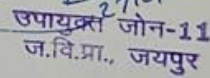 उपायुक्त जोन-11
ज.वि.प्रा., जयपुर